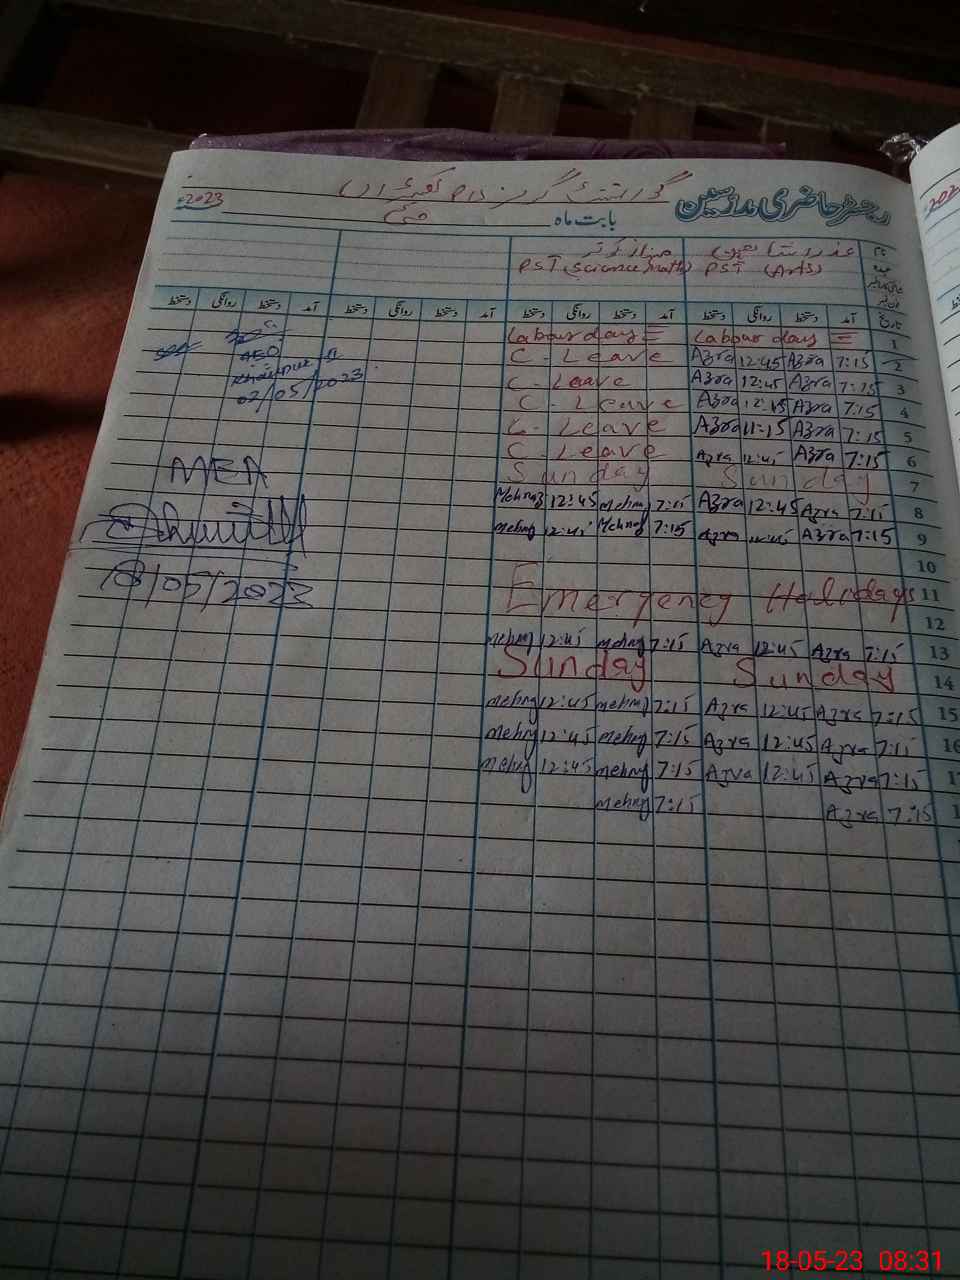 رجسٹر حاضری مدرسین گورنمنٹ گرلز P/S
2023ء بابت ماہ مئی
نام
PST (Science math) PST (Arts)
تاریخ آمد دستخط روانگی دستخط آمد دستخط روانگی دستخط آمد دستخط روانگی دستخط آمد دستخط روانگی دستخط
Labour day = Labour day = 1
C - Leave Azra 12:45 Azra 7:15 2
C - Leave Azra 12:45 Azra 7:15 3
C - Leave Azra 12:45 Azra 7:15 4
C - Leave Azra 11:15 Azra 7:15 5
C - Leave Azra 12:45 Azra 7:15 6
Sunday Sunday 7
Mehnaz 12:45 Mehnaz 7:15 Azra 12:45 Azra 7:15 8
Mehnaz 12:45 Mehnaz 7:15 Azra 12:45 Azra 7:15 9
10
Emergency Holidays 11
12
Mehnaz 12:45 Mehnaz 7:15 Azra 12:45 Azra 7:15 13
Sunday Sunday 14
Mehnaz 12:45 Mehnaz 7:15 Azra 12:45 Azra 7:15 15
Mehnaz 12:45 Mehnaz 7:15 Azra 12:45 Azra 7:15 16
Mehnaz 12:45 Mehnaz 7:15 Azra 12:45 Azra 7:15 1
Mehnaz 7:15 Azra 7:15 1
AEO
02/05/2023
MEA
18/05/2023
18-05-23 08:31